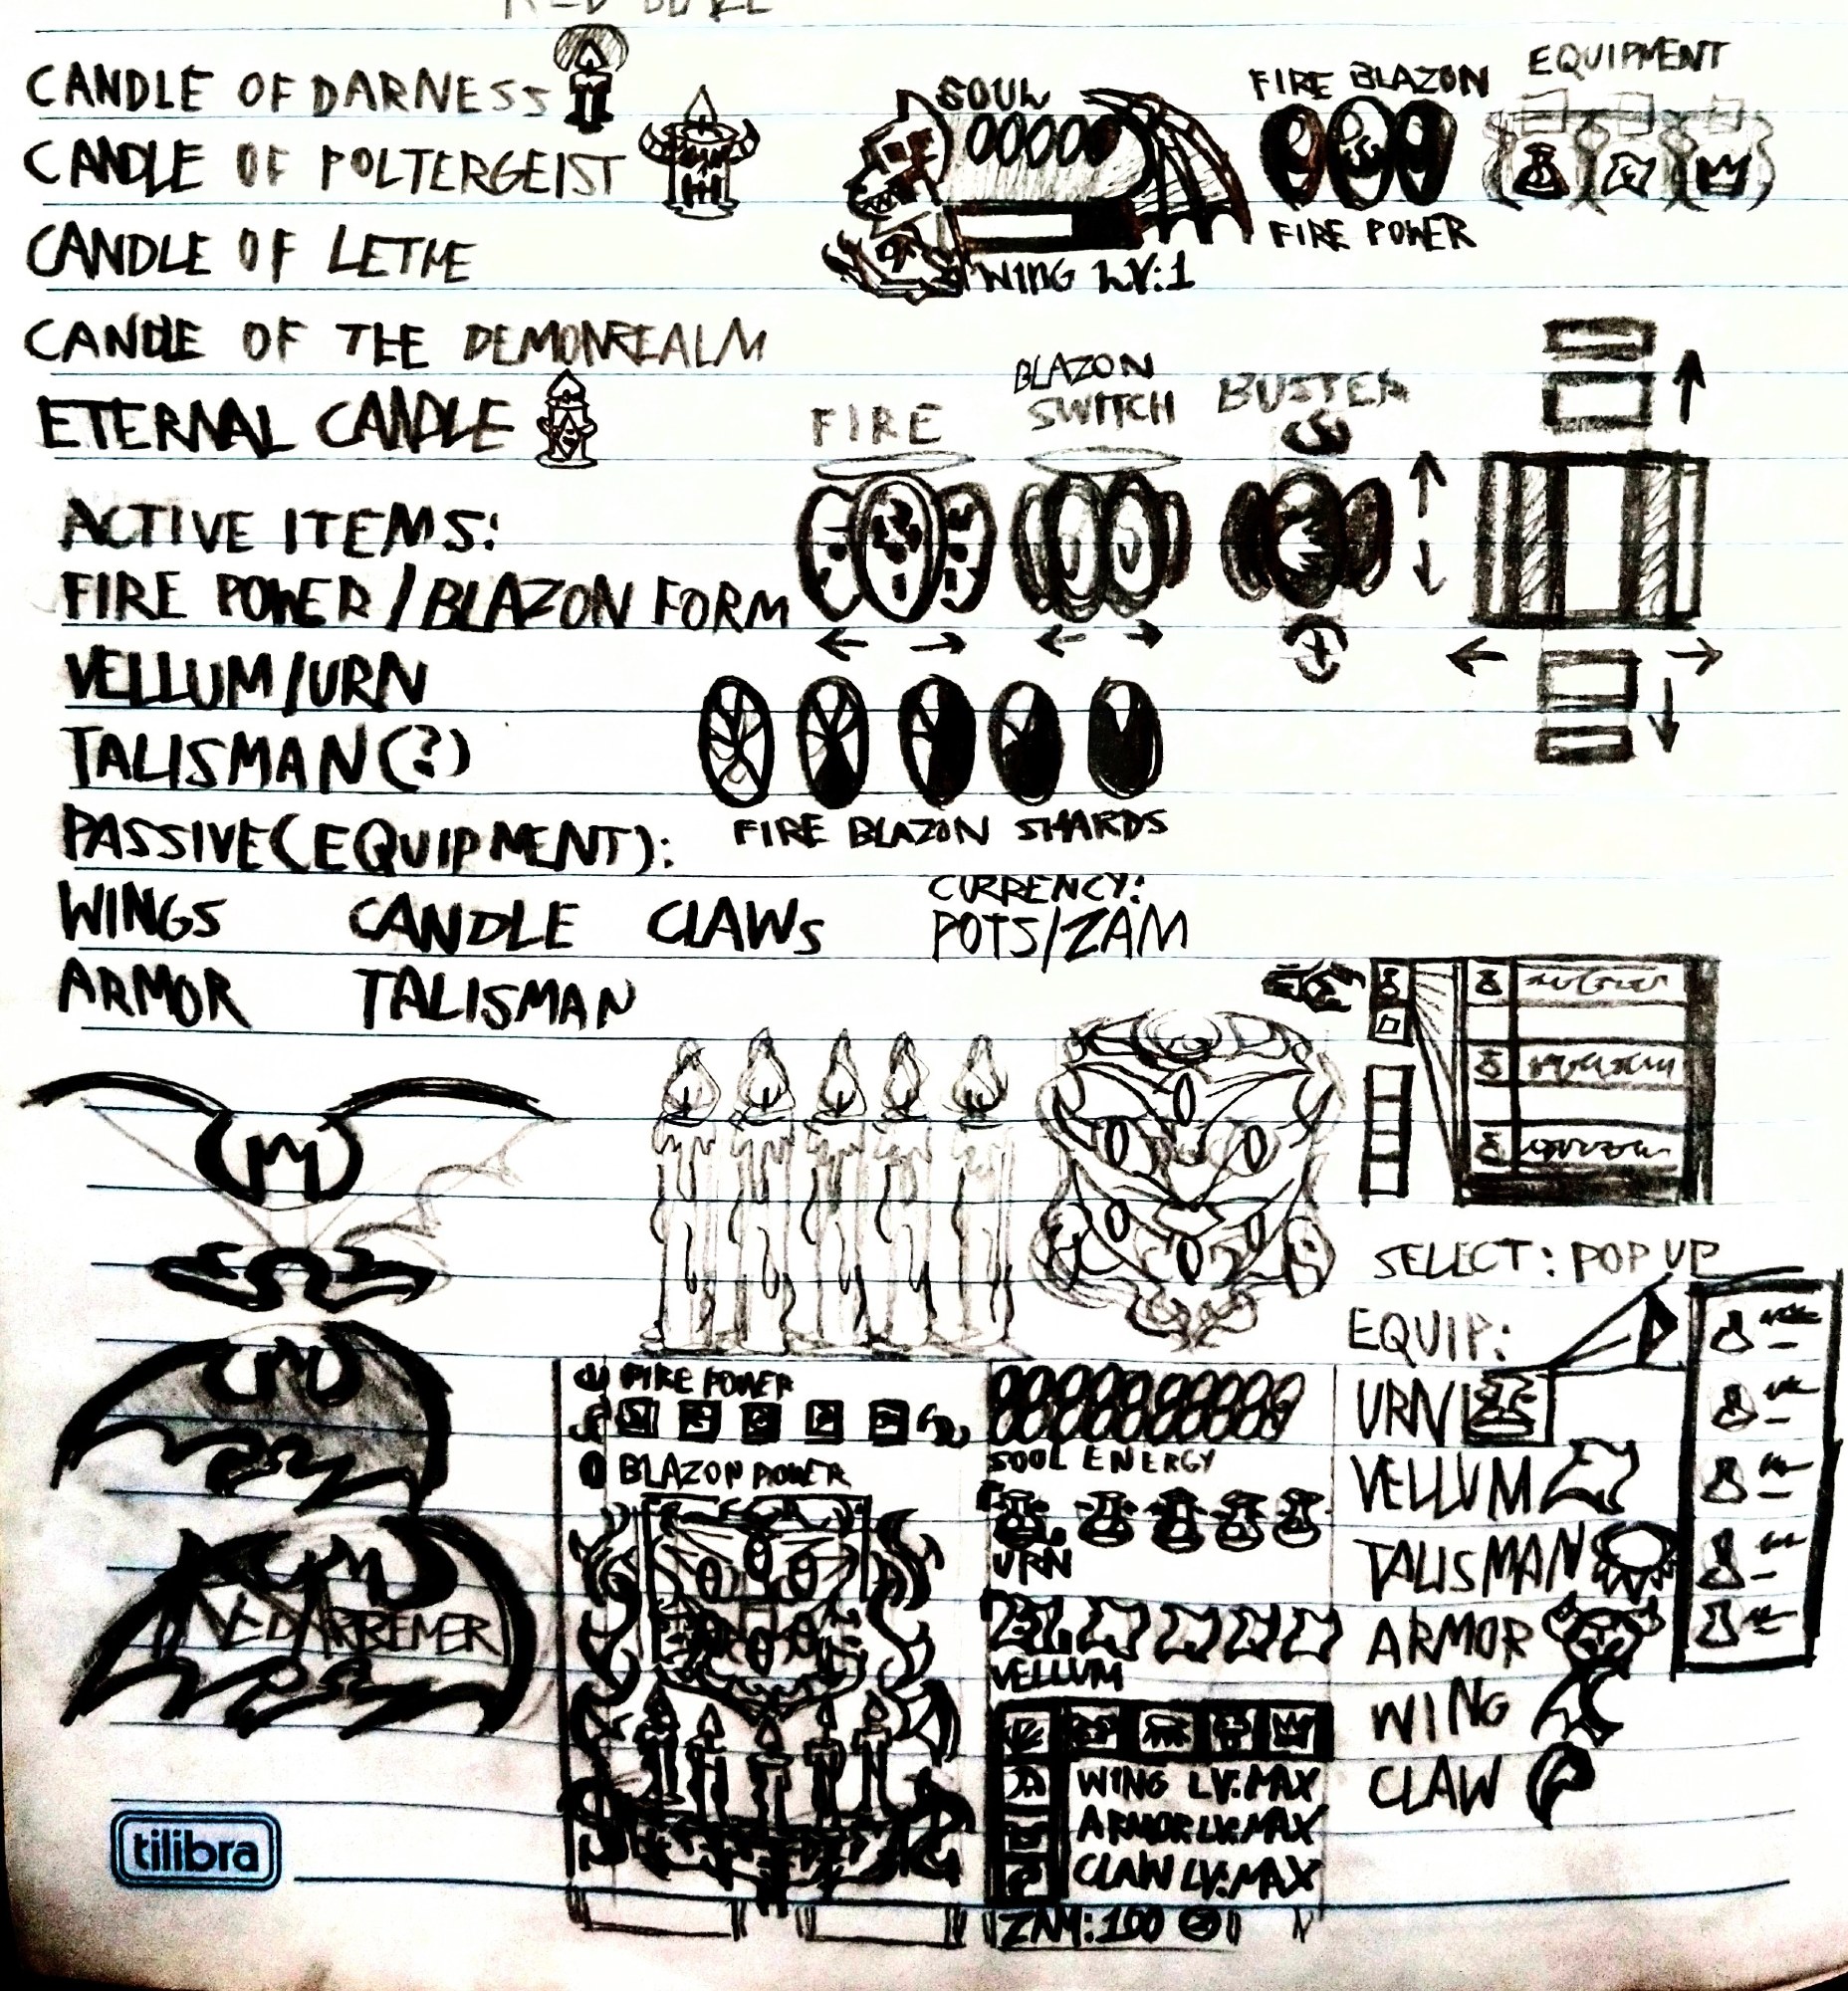 CANDLE OF DARNESS
CANDLE OF POLTERGEIST
CANDLE OF LETHE
CANDLE OF THE DEMONREALM
ETERNAL CANDLE
SOUL
WING LV:1
FIRE BLAZON
FIRE POWER
EQUIPMENT
FIRE
BLAZON
SWITCH
BUSTER
ACTIVE ITEMS:
FIRE POWER/BLAZON FORM
VELLUM/URN
TALISMAN(?)
FIRE BLAZON SHARDS
PASSIVE(EQUIPMENT):
WINGS CANDLE CLAWS
ARMOR TALISMAN
CURRENCY:
POTS/ZAM
SELECT: POP UP
EQUIP:
URN
VELLUM
TALISMAN
ARMOR
WING
CLAW
FIRE POWER
BLAZON POWER
SOUL ENERGY
URN
VELLUM
WING LV:MAX
ARMOR LV:MAX
CLAW LV:MAX
ZAM:100
tilibra